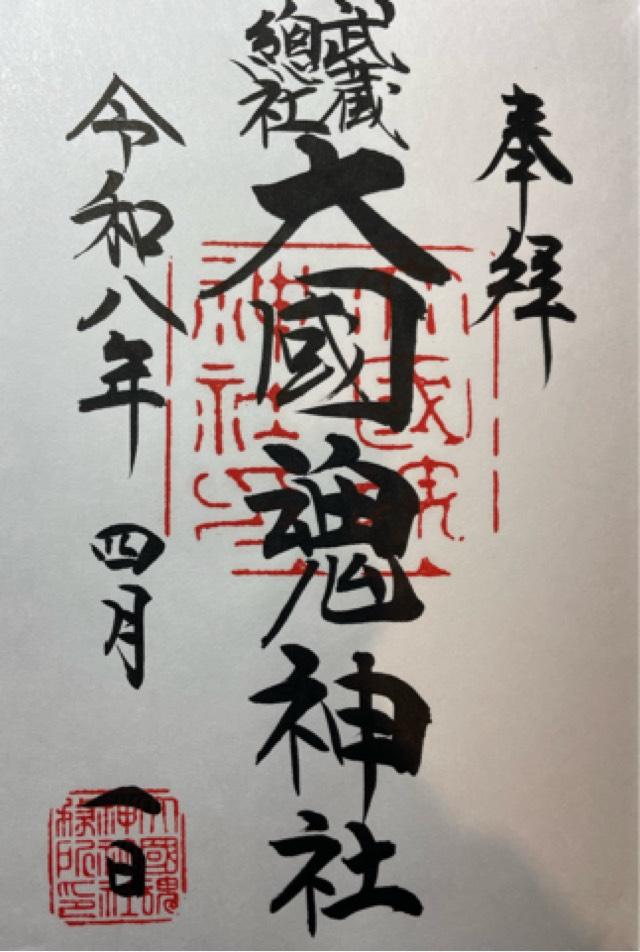 奉拝
武蔵
總社
大國魂神社
令和八年 四月 一日
大國魂
神社